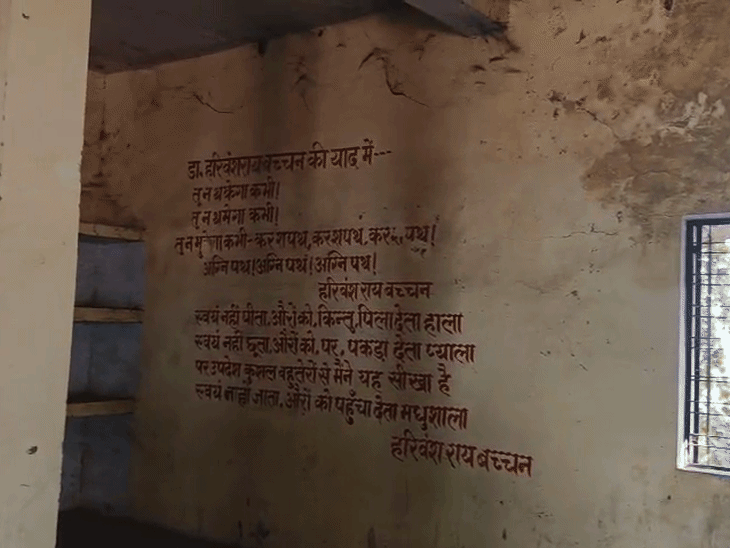 डा. हरिवंशराय बच्चन की याद में---
तु न थकेगा कभी!
तु न थमेगा कभी!
तु न मुड़ेगा कभी-कर शपथ, कर शपथ, कर शपथ!
अग्नि पथ! अग्नि पथ! अग्नि पथ!
हरिवंश राय बच्चन
स्वयं नहीं पीता, औरों को, किन्तु, पिला देता हाला
स्वयं नहीं छूता, औरों को, पर, पकड़ा देता प्याला
पर उपदेश कुशल बहुतेरों से मैने यह सीखा है
स्वयं नहीं जाता, औरों को पहुँचा देता मधुशाला
हरिवंश राय बच्चन